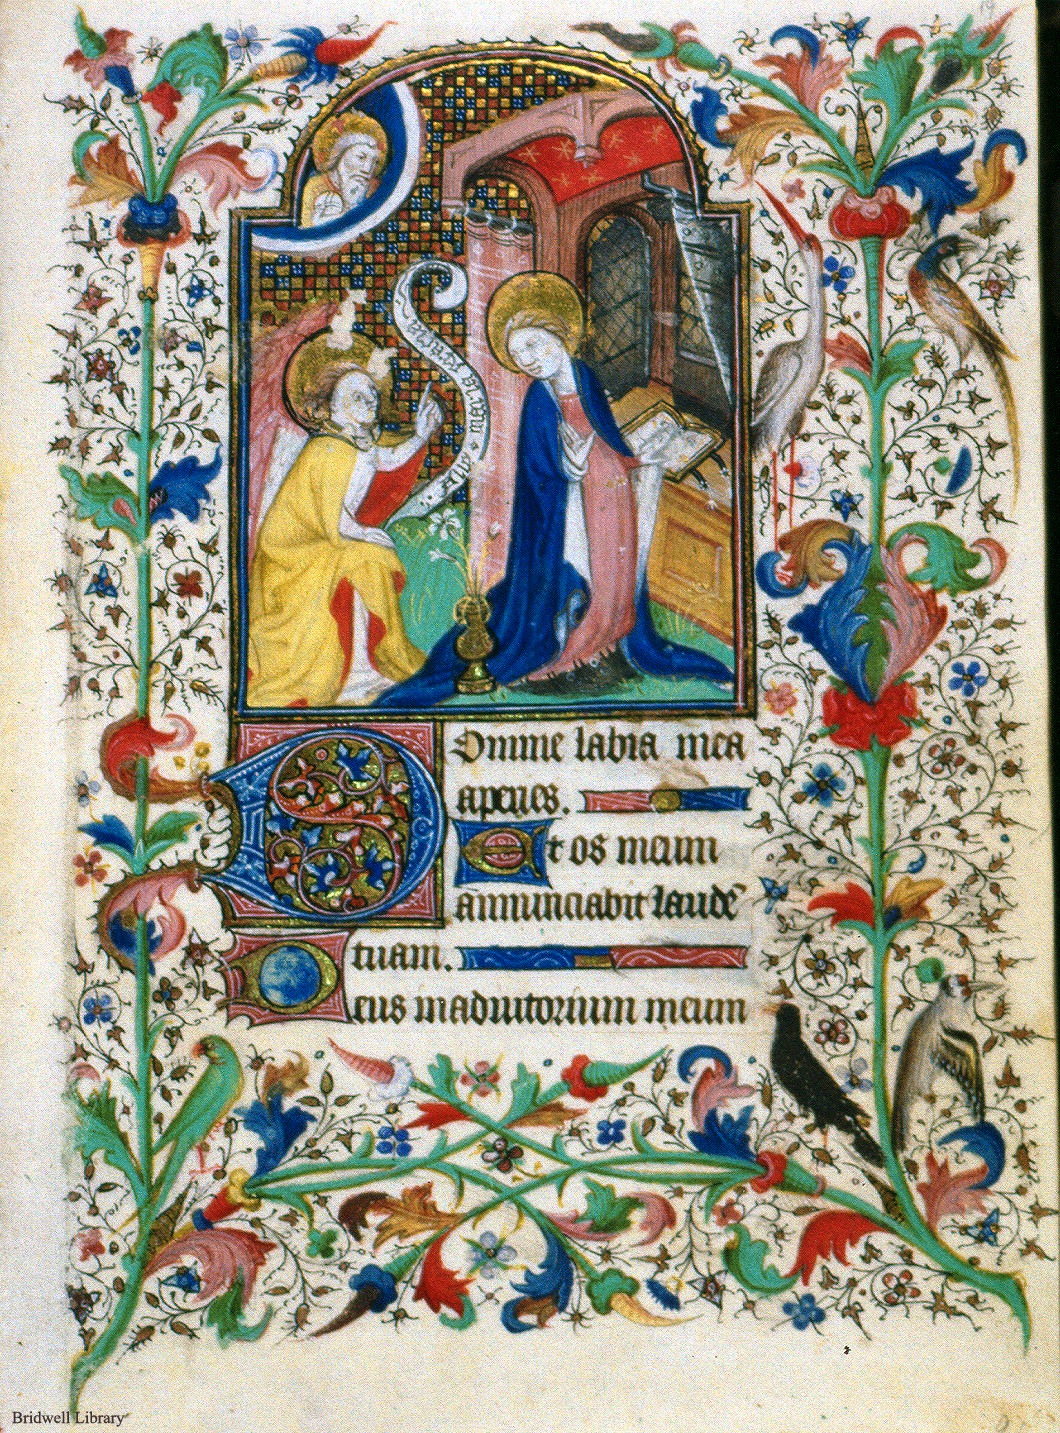 Domine labia mea
aperies.
Et os meum
annunciabit laudē
tuam.
Deus in adiutorium meum
Bridwell Library